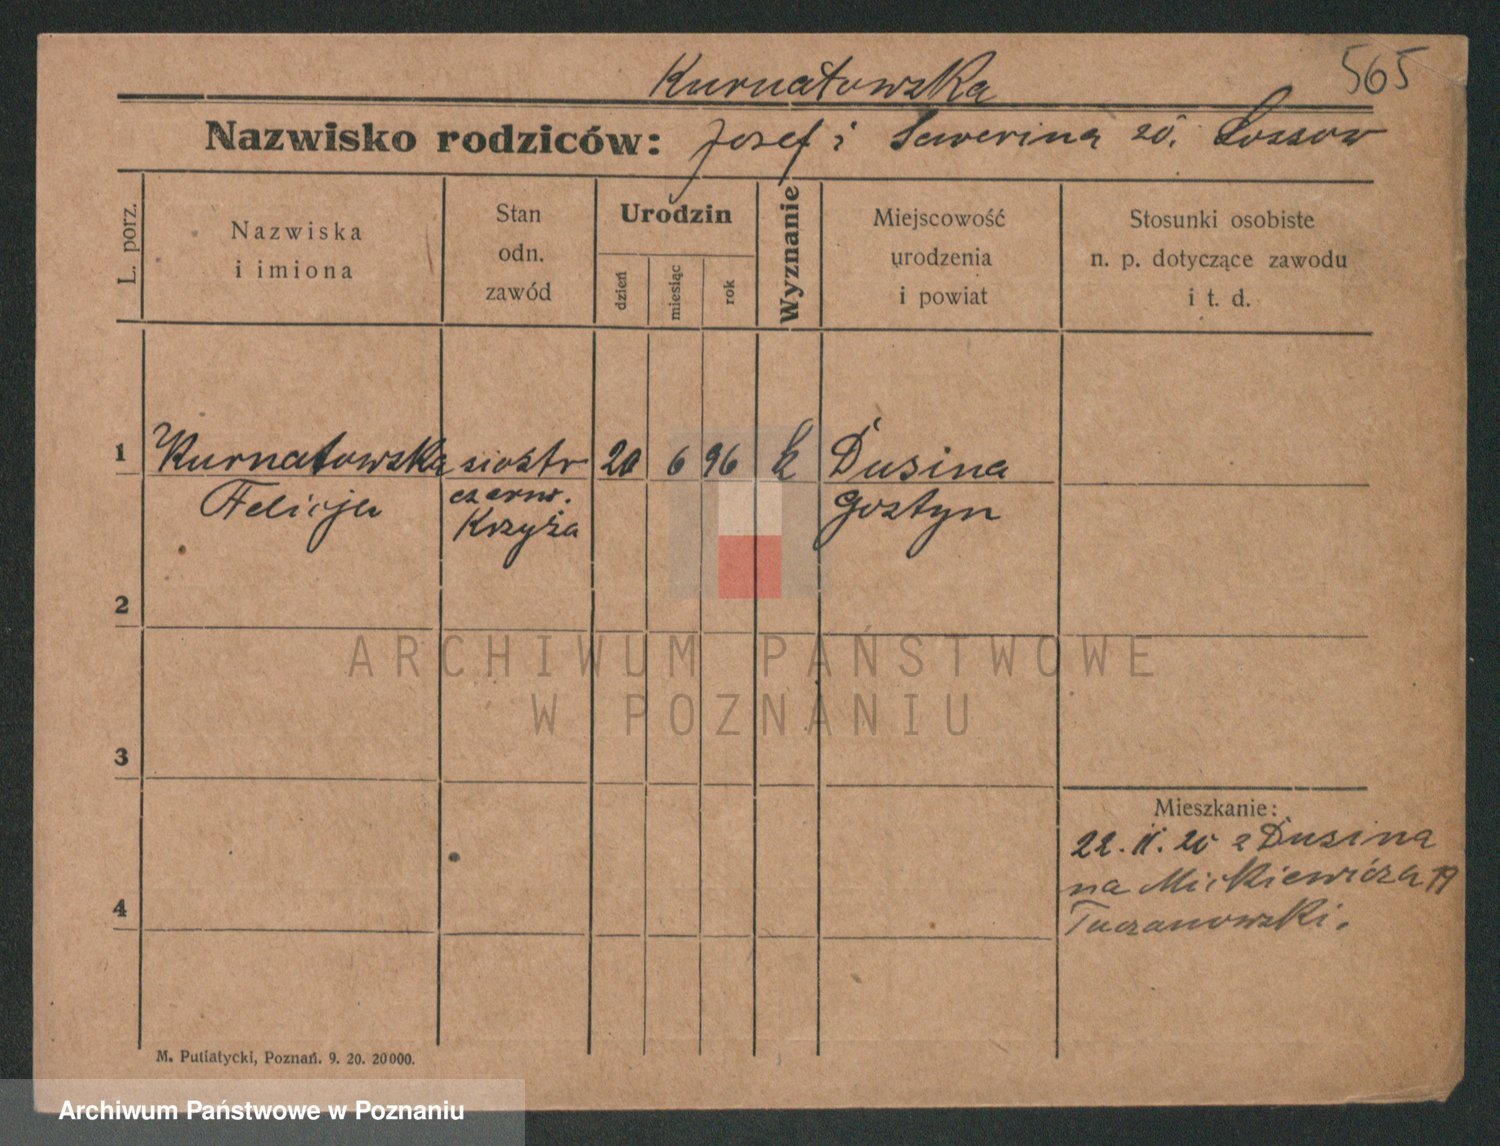 565
Kurnatowska
Nazwisko rodziców: Josef i Sewerina zd. Lossow
L. porz.
Nazwiska
i imiona
Stan
odn.
zawód
Urodzin
dzień
miesiąc
rok
Wyznanie
Miejscowość
urodzenia
i powiat
Stosunki osobiste
n. p. dotyczące zawodu
i t. d.
1 Kurnatowska siostr 20 6 96 k Dusina
Felicja czerw. Gostyn
Krzyża
2
3
4
Mieszkanie:
22. 20 z Dusina
na Mickiewicza 19
Taczanowski.
M. Putiatycki, Poznań. 9. 20. 20000.
ARCHIWUM PAŃSTWOWE
W POZNANIU
Archiwum Państwowe w Poznaniu